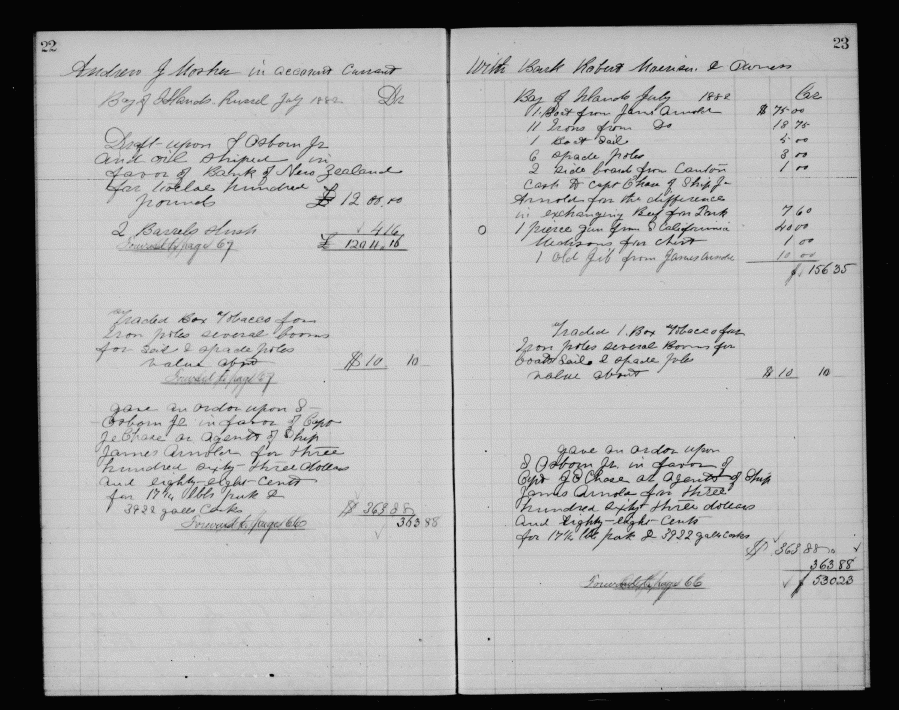 22
Andrew J Mosher in account Current
Bay of Islands Russel July 1882 Dr
Draft upon J Osborn Jr
and oil shiped in
favor of Bank of New Zealand
for twelve hundred
pounds £ 12 00.00
2 Barrels 4 16
Forward to page 67 £ 1204.16
Traded Box Tobacco for
Iron poles several booms
for sail & spade poles
value about $ 10 10
Forward to page 67
gave an order upon J
Osborn Jr in favor of Capt
J Chase as Agent of Ship
James Arnold for three
hundred sixty three dollars
and eighty-eight cents
for 17¼ bbls pork &
3922 galls Casks $ 363 88
Forward to page 66 363 88
23
With Bark Robert Morrison & Owners
Bay of Islands July 1882 Cr
1 Boat from James Arnold $ 75 00
11 Irons from Do 18 75
1 Boat Sail 5 00
6 spade poles 3 00
2 side boards from Canton 1 00
Cash to Capt Chase of Ship J
Arnold for the difference
in exchanging Beef for Pork 7 60
1 pierce gun from California 40 00
for 1 00
1 old Jib from James Arnold 10 00
156 35
Traded 1 Box Tobacco for
Iron poles several Booms for
boats Sails & spade poles
value about $ 10 10
gave an order upon
J Osborn Jr. in favor of
Capt J Chase as Agent of Ship
James Arnold for three
hundred sixty three dollars
and Eighty-eight Cents
for 17¼ bbls pork & 3922 galls casks
$ 363 88
363 88
Forward to page 66 $ 530 23